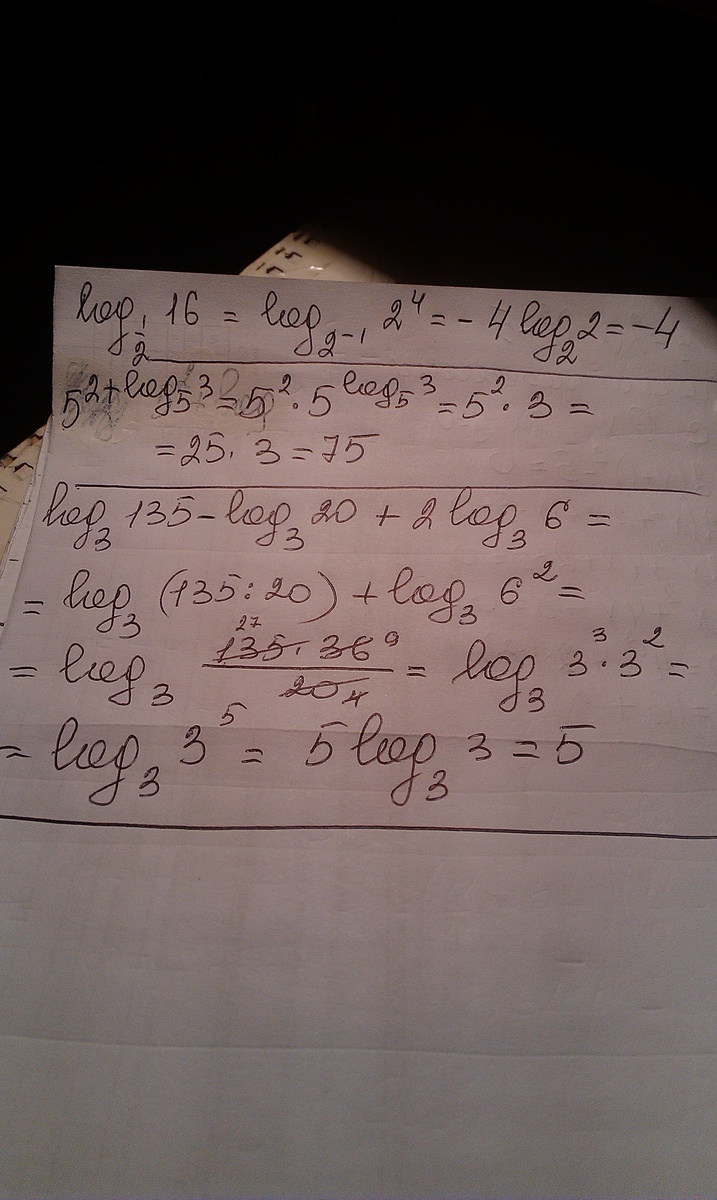 log_{1/2} 16 = log_{2^{-1}} 2^4 = -4 log_2 2 = -4
5^{2+log_5 3} = 5^2 · 5^{log_5 3} = 5^2 · 3 =
= 25 · 3 = 75
log_3 135 - log_3 20 + 2 log_3 6 =
= log_3 (135 : 20) + log_3 6^2 =
= log_3 \frac{\cancel{135}^{27} · \cancel{36}^{9}}{\cancel{20}_{4}} = log_3 3^3 · 3^2 =
= log_3 3^5 = 5 log_3 3 = 5